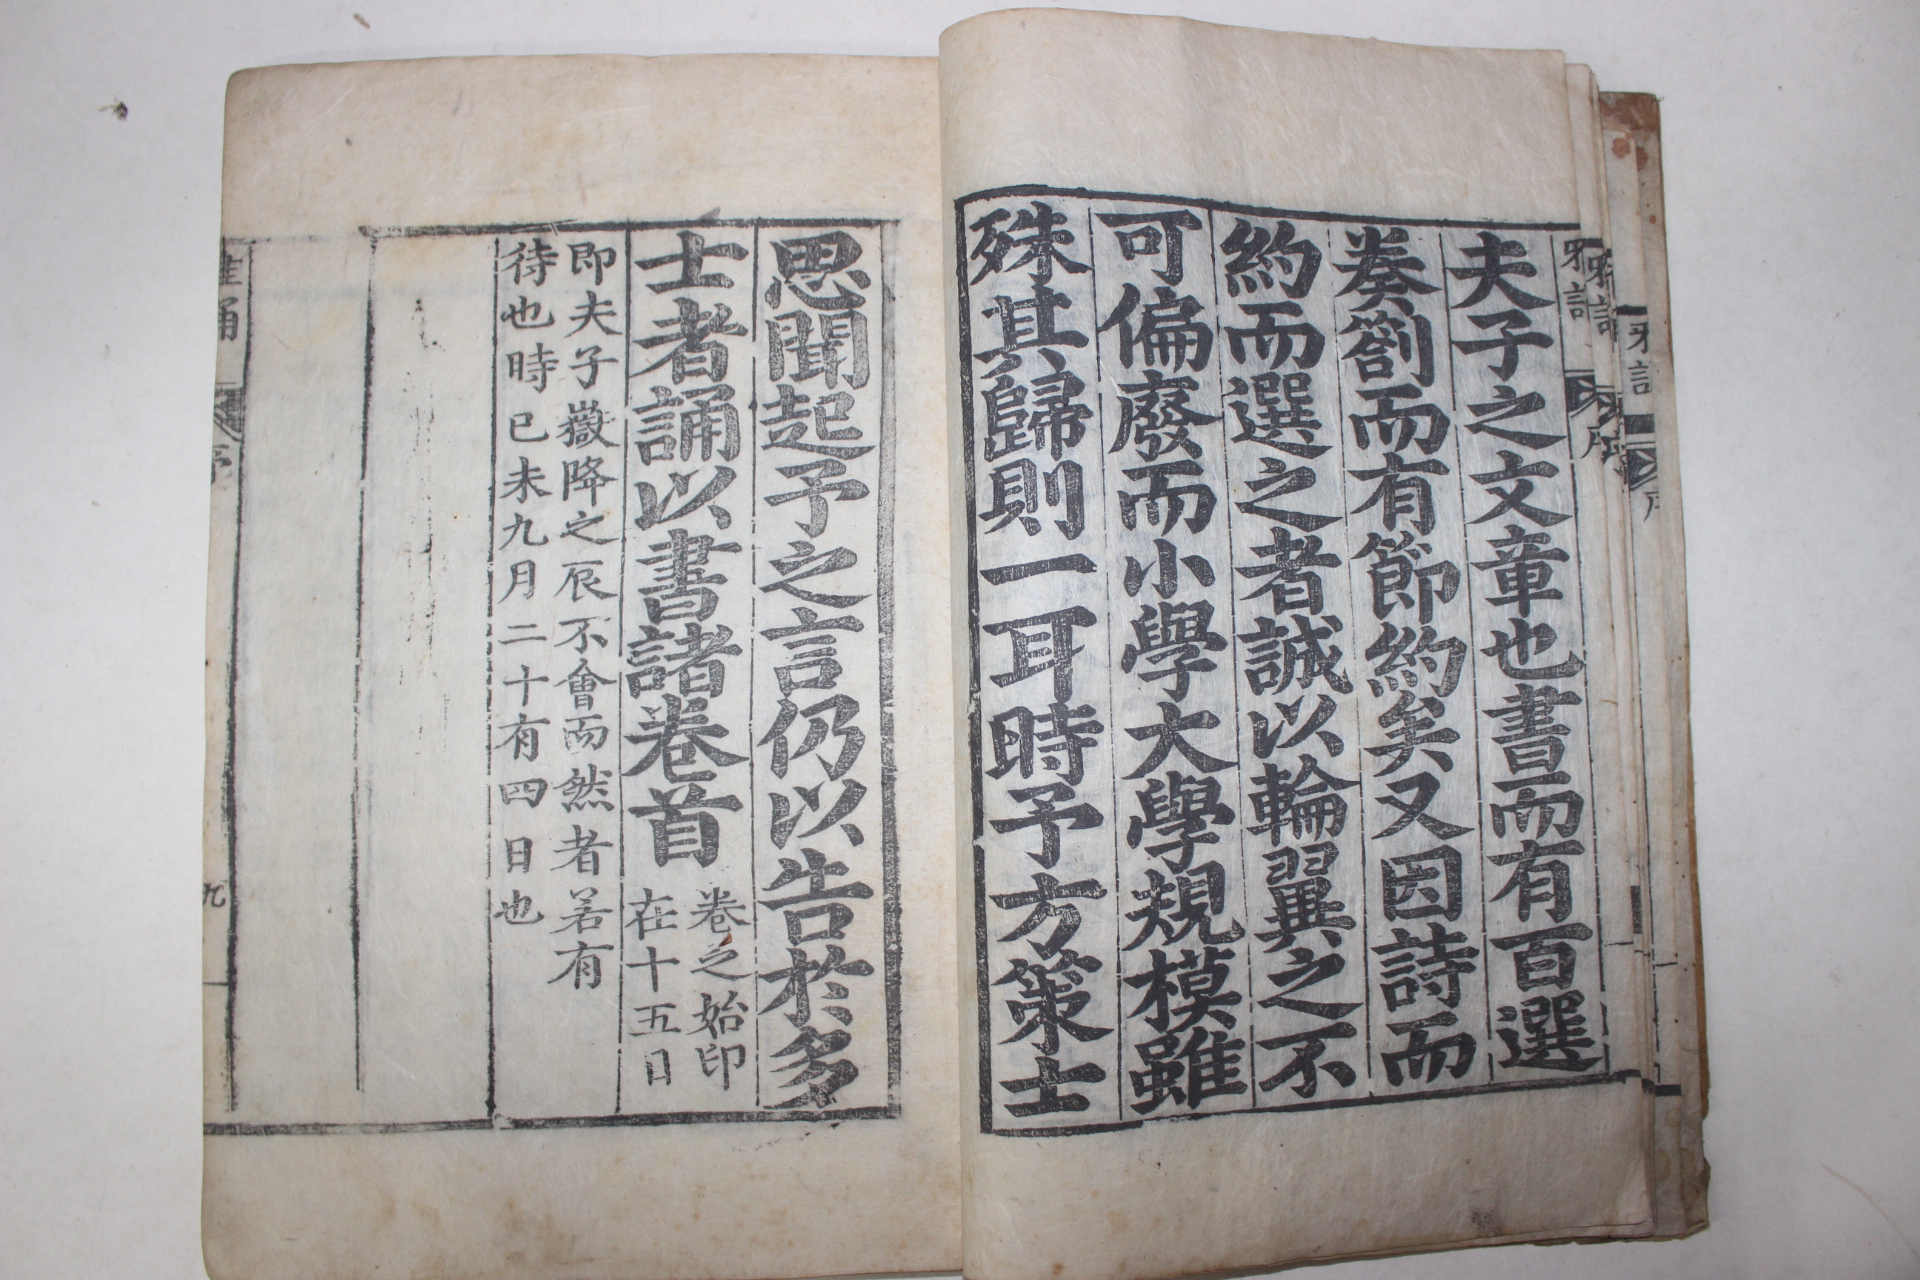 夫子之文章也書而有百選
奏劄而有節約矣又因詩而
約而選之者誠以輪翼之不
可偏廢而小學大學規模雖
殊其歸則一耳時予方策士
思聞起予之言仍以告於多
士者誦以書諸卷首
卷之始印
在十五日
即夫子嶽降之辰不會而然者若有
待也時已未九月二十有四日也
雅誦
序
九